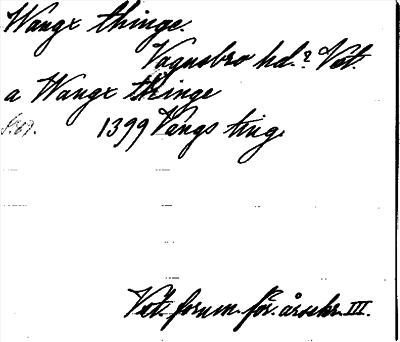 Wangx thinge.
Vagnsbro hd.? Vät.
a Wangx thinge
S. 67. 1399 Vangs ting.
Vät. fornm. för. årsskr. III.